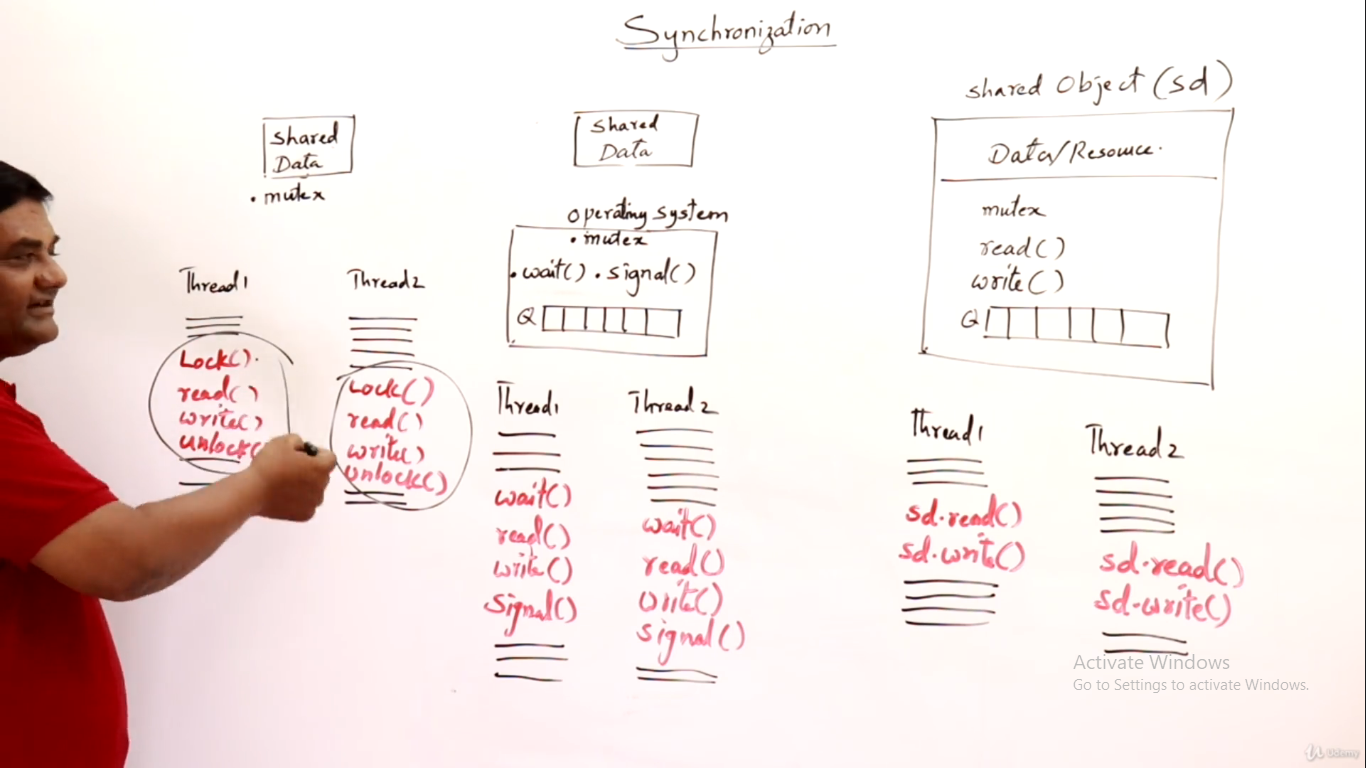 Synchronization
Shared
Data
• mutex
Thread1
Lock().
read()
write()
unlock(
Thread2
Lock()
read()
write()
unlock()
Shared
Data
operating system
• mutex
• wait() • signal()
Q
Thread1
wait()
read()
write()
signal()
Thread2
wait()
read()
write()
signal()
shared Object (sd)
Data/Resource.
mutex
read()
write()
Q
Thread1
sd.read()
sd.write()
Thread2
sd.read()
sd.write()
Activate Windows
Go to Settings to activate Windows.
Udemy